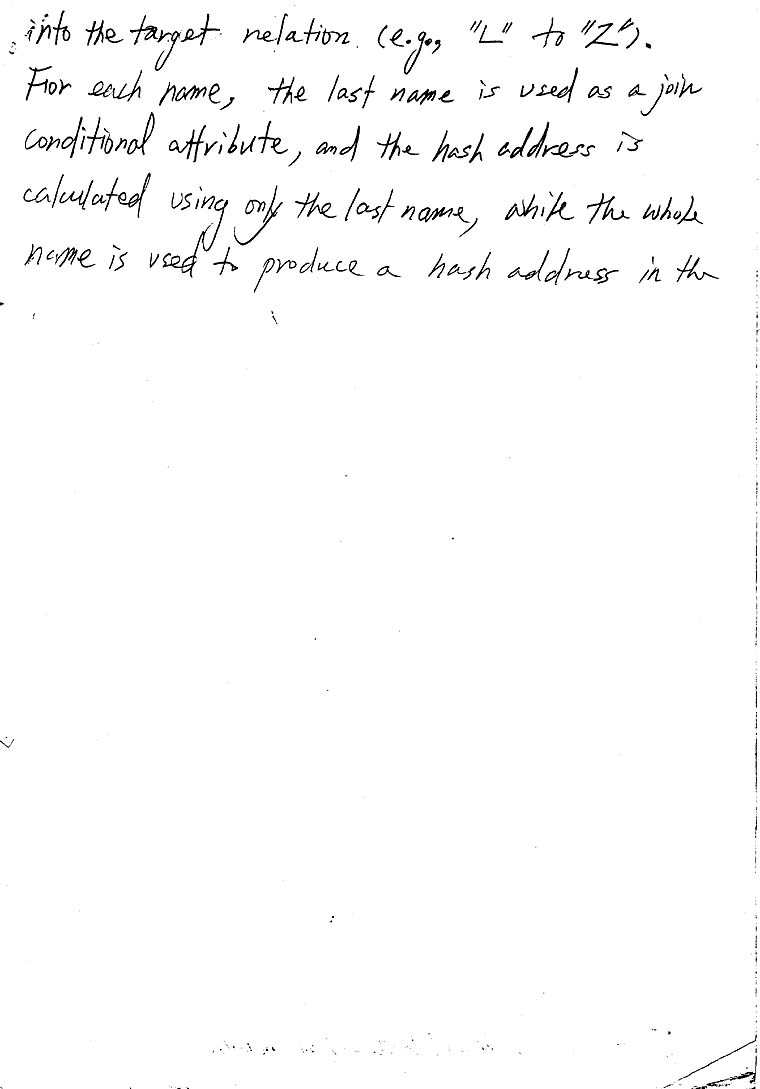 into the target relation. (e.g., "L" to "Z").
For each name, the last name is used as a join
conditional attribute, and the hash address is
calculated using only the last name, while the whole
name is used to produce a hash address in the